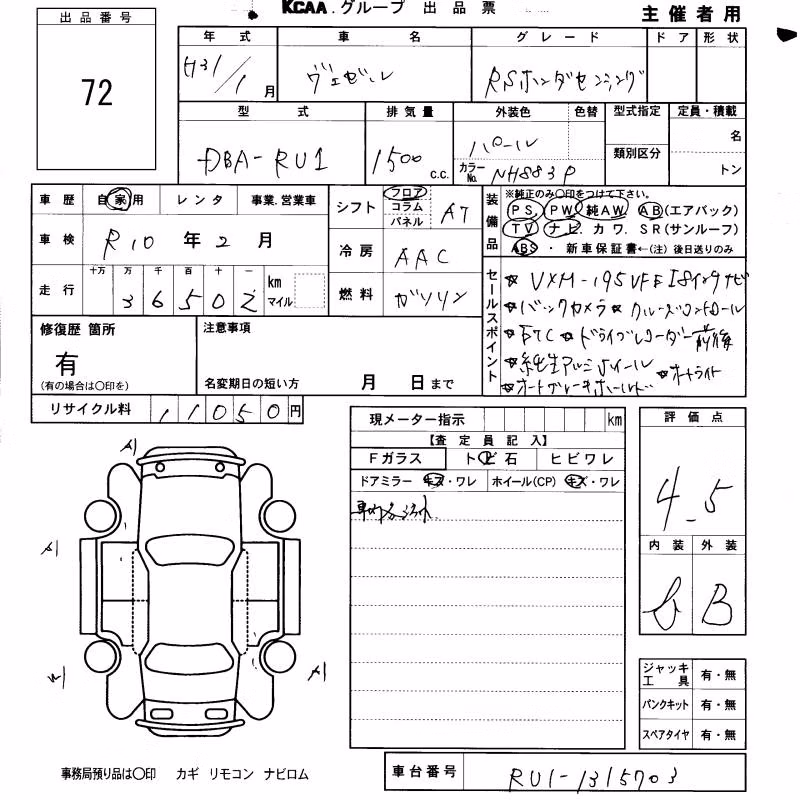 KCAA.グループ 出品票
主催者用
出品番号
72
年式 車名 グレード ドア 形状
H31/1月 ヴェゼル RSホンダセンシング
型式 排気量 外装色 色替 型式指定 定員・積載
DBA-RU1 1500 c.c. パール 名
カラーNo. NH883P 類別区分 トン
車歴 自家用 レンタ 事業.営業車
車検 R10年2月
走行 十万 万 千 百 十 一 km マイル
36502
シフト フロア コラム パネル AT
冷房 AAC
燃料 ガソリン
装備品 ※純正のみ○印をつけて下さい。
PS. PW. 純AW. AB(エアバッグ)
TV. ナビ. カワ. SR(サンルーフ)
ABS ・ 新車保証書←(注) 後日送りのみ
セールスポイント
☆ VXM-195VFEI8インチナビ
☆バックカメラ ☆クルーズコントロール
☆ETC ☆ドライブレコーダー前後
☆純正アルミホイール ☆オートライト
☆オートブレーキホールド
修復歴 箇所
有
(有の場合は○印を)
注意事項
名変期日の短い方 月 日まで
リサイクル料 11050円
現メーター指示 km
【査定員記入】
Fガラス トビ石 ヒビワレ
ドアミラー キズ・ワレ ホイール(CP) キズ・ワレ
評価点
4.5
内装 外装
b B
A1
A1
A1
ジャッキ工具 有・無
パンクキット 有・無
スペアタイヤ 有・無
事務局預り品は○印 カギ リモコン ナビロム
車台番号 RU1-1315703